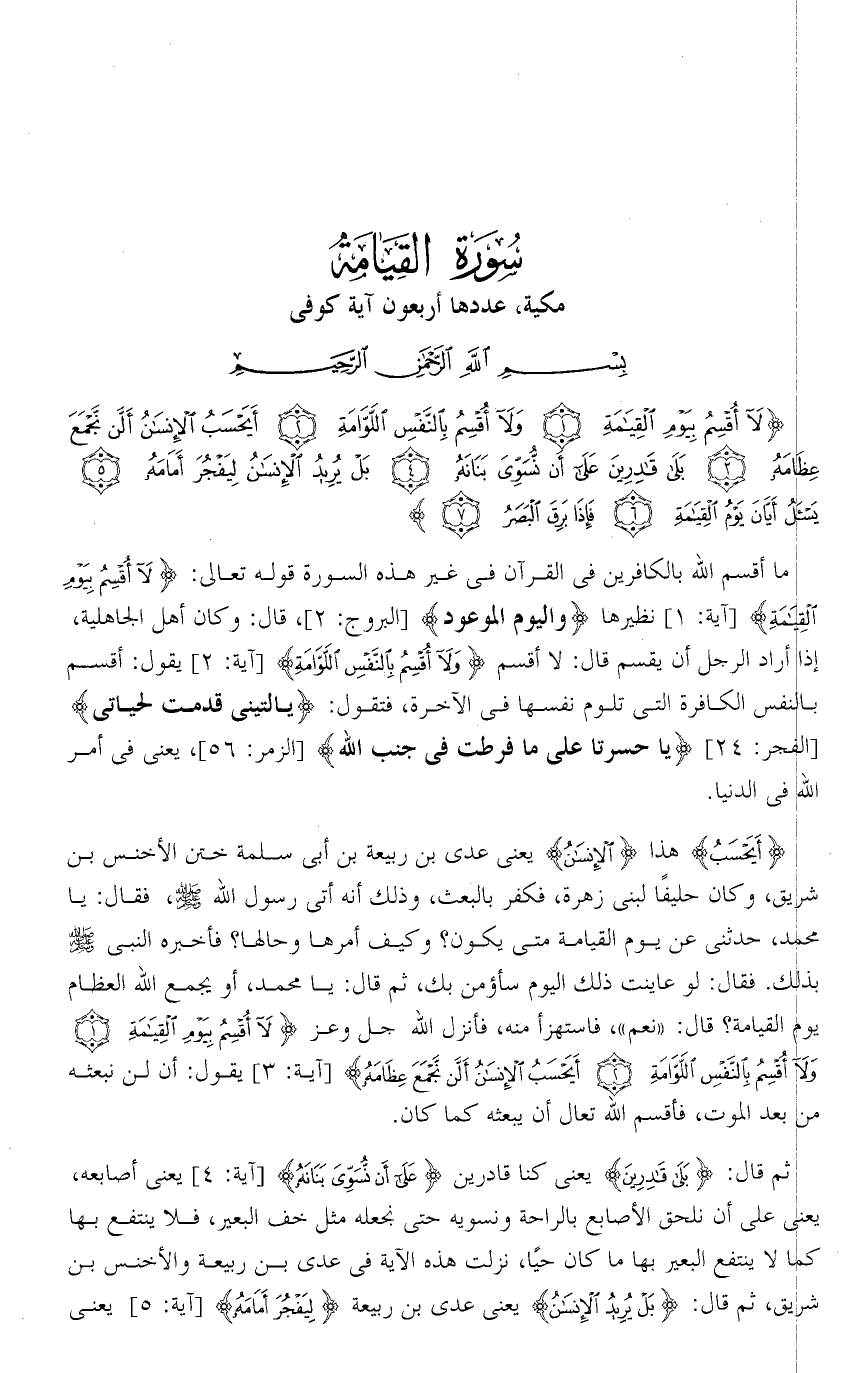 سُورَة القِيَامَةُ
مكية، عددها أربعون آية كوفى
بِسْمِ اللَّهِ الرَّحْمَٰنِ الرَّحِيمِ
﴿ لَآ أُقْسِمُ بِيَوْمِ ٱلْقِيَٰمَةِ ١ وَلَآ أُقْسِمُ بِٱلنَّفْسِ ٱللَّوَّامَةِ ٢ أَيَحْسَبُ ٱلْإِنسَٰنُ أَلَّن نَّجْمَعَ
عِظَامَهُۥ ٣ بَلَىٰ قَٰدِرِينَ عَلَىٰٓ أَن نُّسَوِّىَ بَنَانَهُۥ ٤ بَلْ يُرِيدُ ٱلْإِنسَٰنُ لِيَفْجُرَ أَمَامَهُۥ ٥
يَسْـَٔلُ أَيَّانَ يَوْمُ ٱلْقِيَٰمَةِ ٦ فَإِذَا بَرِقَ ٱلْبَصَرُ ٧ ﴾
ما أقسم الله بالكافرين فى القرآن فى غير هذه السورة قوله تعالى: ﴿ لَآ أُقْسِمُ بِيَوْمِ
ٱلْقِيَٰمَةِ ﴾ [آية: ١] نظيرها ﴿واليوم الموعود﴾ [البروج: ٢]، قال: وكان أهل الجاهلية،
إذا أراد الرجل أن يقسم قال: لا أقسم ﴿ وَلَآ أُقْسِمُ بِٱلنَّفْسِ ٱللَّوَّامَةِ ﴾ [آية: ٢] يقول: أقسم
بالنفس الكافرة التى تلوم نفسها فى الآخرة، فتقول: ﴿يالتينى قدمت لحياتى﴾
[الفجر: ٢٤] ﴿يا حسرتا على ما فرطت فى جنب الله﴾ [الزمر: ٥٦]، يعنى فى أمر
الله فى الدنيا.
﴿ أَيَحْسَبُ ﴾ هذا ﴿ ٱلْإِنسَٰنُ ﴾ يعنى عدى بن ربيعة بن أبى سلمة ختن الأخنس بن
شريق، وكان حليفًا لبنى زهرة، فكفر بالبعث، وذلك أنه أتى رسول الله ﷺ، فقال: يا
محمد، حدثنى عن يوم القيامة متى يكون؟ وكيف أمرها وحالها؟ فأخبره النبى ﷺ
بذلك. فقال: لو عاينت ذلك اليوم سأؤمن بك، ثم قال: يا محمد، أو يجمع الله العظام
يوم القيامة؟ قال: «نعم»، فاستهزأ منه، فأنزل الله جل وعز ﴿ لَآ أُقْسِمُ بِيَوْمِ ٱلْقِيَٰمَةِ ١
وَلَآ أُقْسِمُ بِٱلنَّفْسِ ٱللَّوَّامَةِ ٢ أَيَحْسَبُ ٱلْإِنسَٰنُ أَلَّن نَّجْمَعَ عِظَامَهُۥ ﴾ [آية: ٣] يقول: أن لن نبعثه
من بعد الموت، فأقسم الله تعال أن يبعثه كما كان.
ثم قال: ﴿ بَلَىٰ قَٰدِرِينَ ﴾ يعنى كنا قادرين ﴿ عَلَىٰٓ أَن نُّسَوِّىَ بَنَانَهُۥ ﴾ [آية: ٤] يعنى أصابعه،
يعنى على أن نلحق الأصابع بالراحة ونسويه حتى نجعله مثل خف البعير، فلا ينتفع بها
كما لا ينتفع البعير بها ما كان حيًا، نزلت هذه الآية فى عدى بن ربيعة والأخنس بن
شريق، ثم قال: ﴿ بَلْ يُرِيدُ ٱلْإِنسَٰنُ ﴾ يعنى عدى بن ربيعة ﴿ لِيَفْجُرَ أَمَامَهُۥ ﴾ [آية: ٥] يعنى